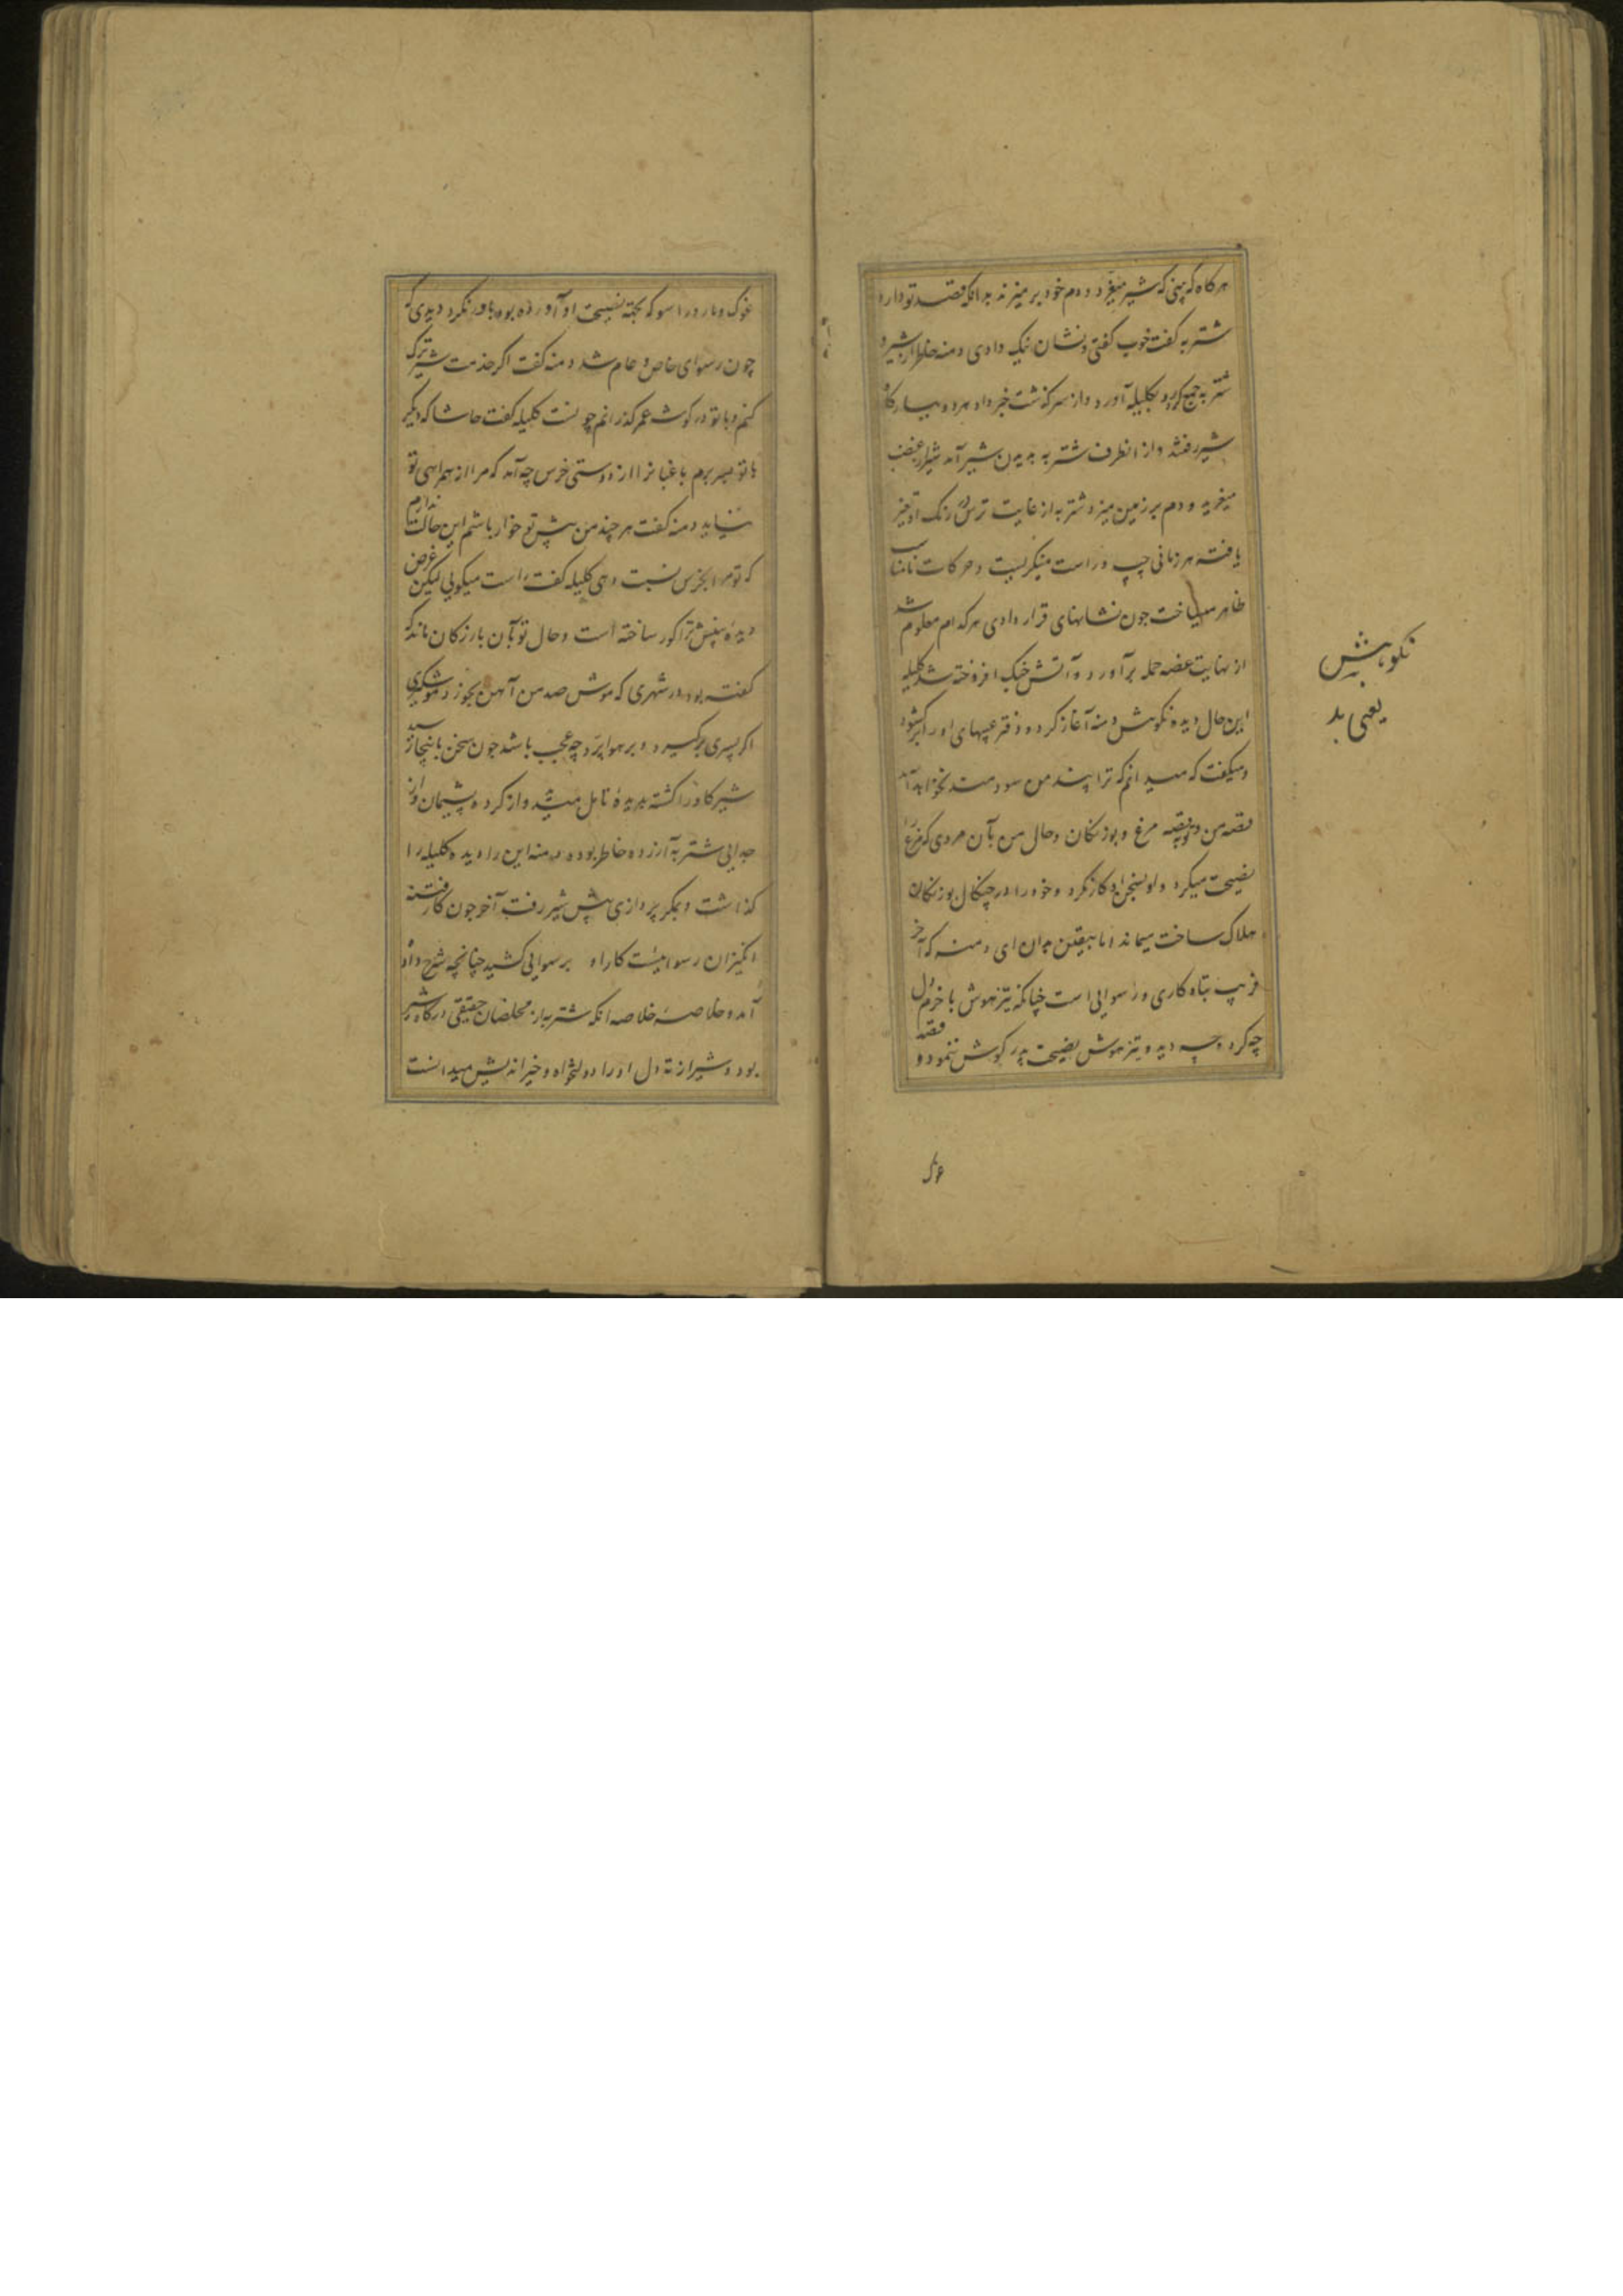 هرکاه که بینی که شیر میغرد و دم خود بر میزند بدانکه قصد تو دارد
شتربه کفت خوب کفتی و نشان نیک دادی دمنه خاطر از شیر و
شتربه جمع کرده بکلیله آورد و از سرکذشت خبر داد هردو ببارکاه
شیر رفتند و از انطرف شتربه بدیدن شیر آمد شیر از غضب
میغرید و دم بر زمین میزد شتربه از غایت ترس رنک او تغیر
یافته هر زمانی چپ و راست مینکریست و حرکات نامناسب
ظاهر میساخت چون نشانهای قرار دادی هرکدام معلوم شد
از نهایت غضه حمله برآورد و آتش جنک افروخته شد کلیله
این حال دیده نکوهش دمنه آغاز کرد و دفتر عیبهای او را برکشود
و میکفت که میدانم که ترا پند من سودمند نخواهد آمد
قصه من و تو بقصه مرغ و بوزنکان و حال من بآن مردی که مرغ را
نصیحت میکرد و او بسخن او کار نکرد و خود را در چنکال بوزنکان
هلاک ساخت میماند اما بیقین بدان ای دمنه که آخر
فریب تباه کاری و رسوایی است چنانکه تیزهوش با خرم دل
چه کرد و چه دید و تیزهوش نصیحت پدر کوش ننمود و قصه
نکوهش
یعنی بد
غوک و مار و راسو که بجهة نصیحت او آورده بود باور نکرد دیدی که
چون رسوای خاص و عام شد دمنه کفت اکر خدمت شیر ترک
کنم و با تو در کوشه عمر کذرانم چونست کلیله کفت حاشا که دیکر
با تو بسر برم باغبانرا از دوستی خرس چه آمد که مرا از همراهی تو
نیاید دمنه کفت هر چند من پیش تو خوار باشم این حالت ندارم
که تو مرا بخرس نسبت دهی کلیله کفت راست میکویی لیکن غرض
دیده بینش ترا کور ساخته است و حال تو بآن بازرکان ماند که
کفته بود در شهری که موش صد من آهن بخورد موشکیری
اکر پسری برکیرد و بر هوا پرد چه عجب باشد چون سخن باینجا رسید
شیر کاو را کشته بدیده تامل میدید و از کرده پشیمان و از
جدایی شتربه آزرده خاطر بوده دمنه این را دیده کلیله را
کذاشت و بمکر پردازی پیش شیر رفت آخر چون کار فتنه
انکیزان رسواییست کار او برسوایی کشید چنانچه شرح داده
آمد و خلاصه خلاصه آنکه شتربه از مخلصان حقیقی درکاه شیر
بود و شیر از ته دل او را دولتخواه و خیراندیش میدانست